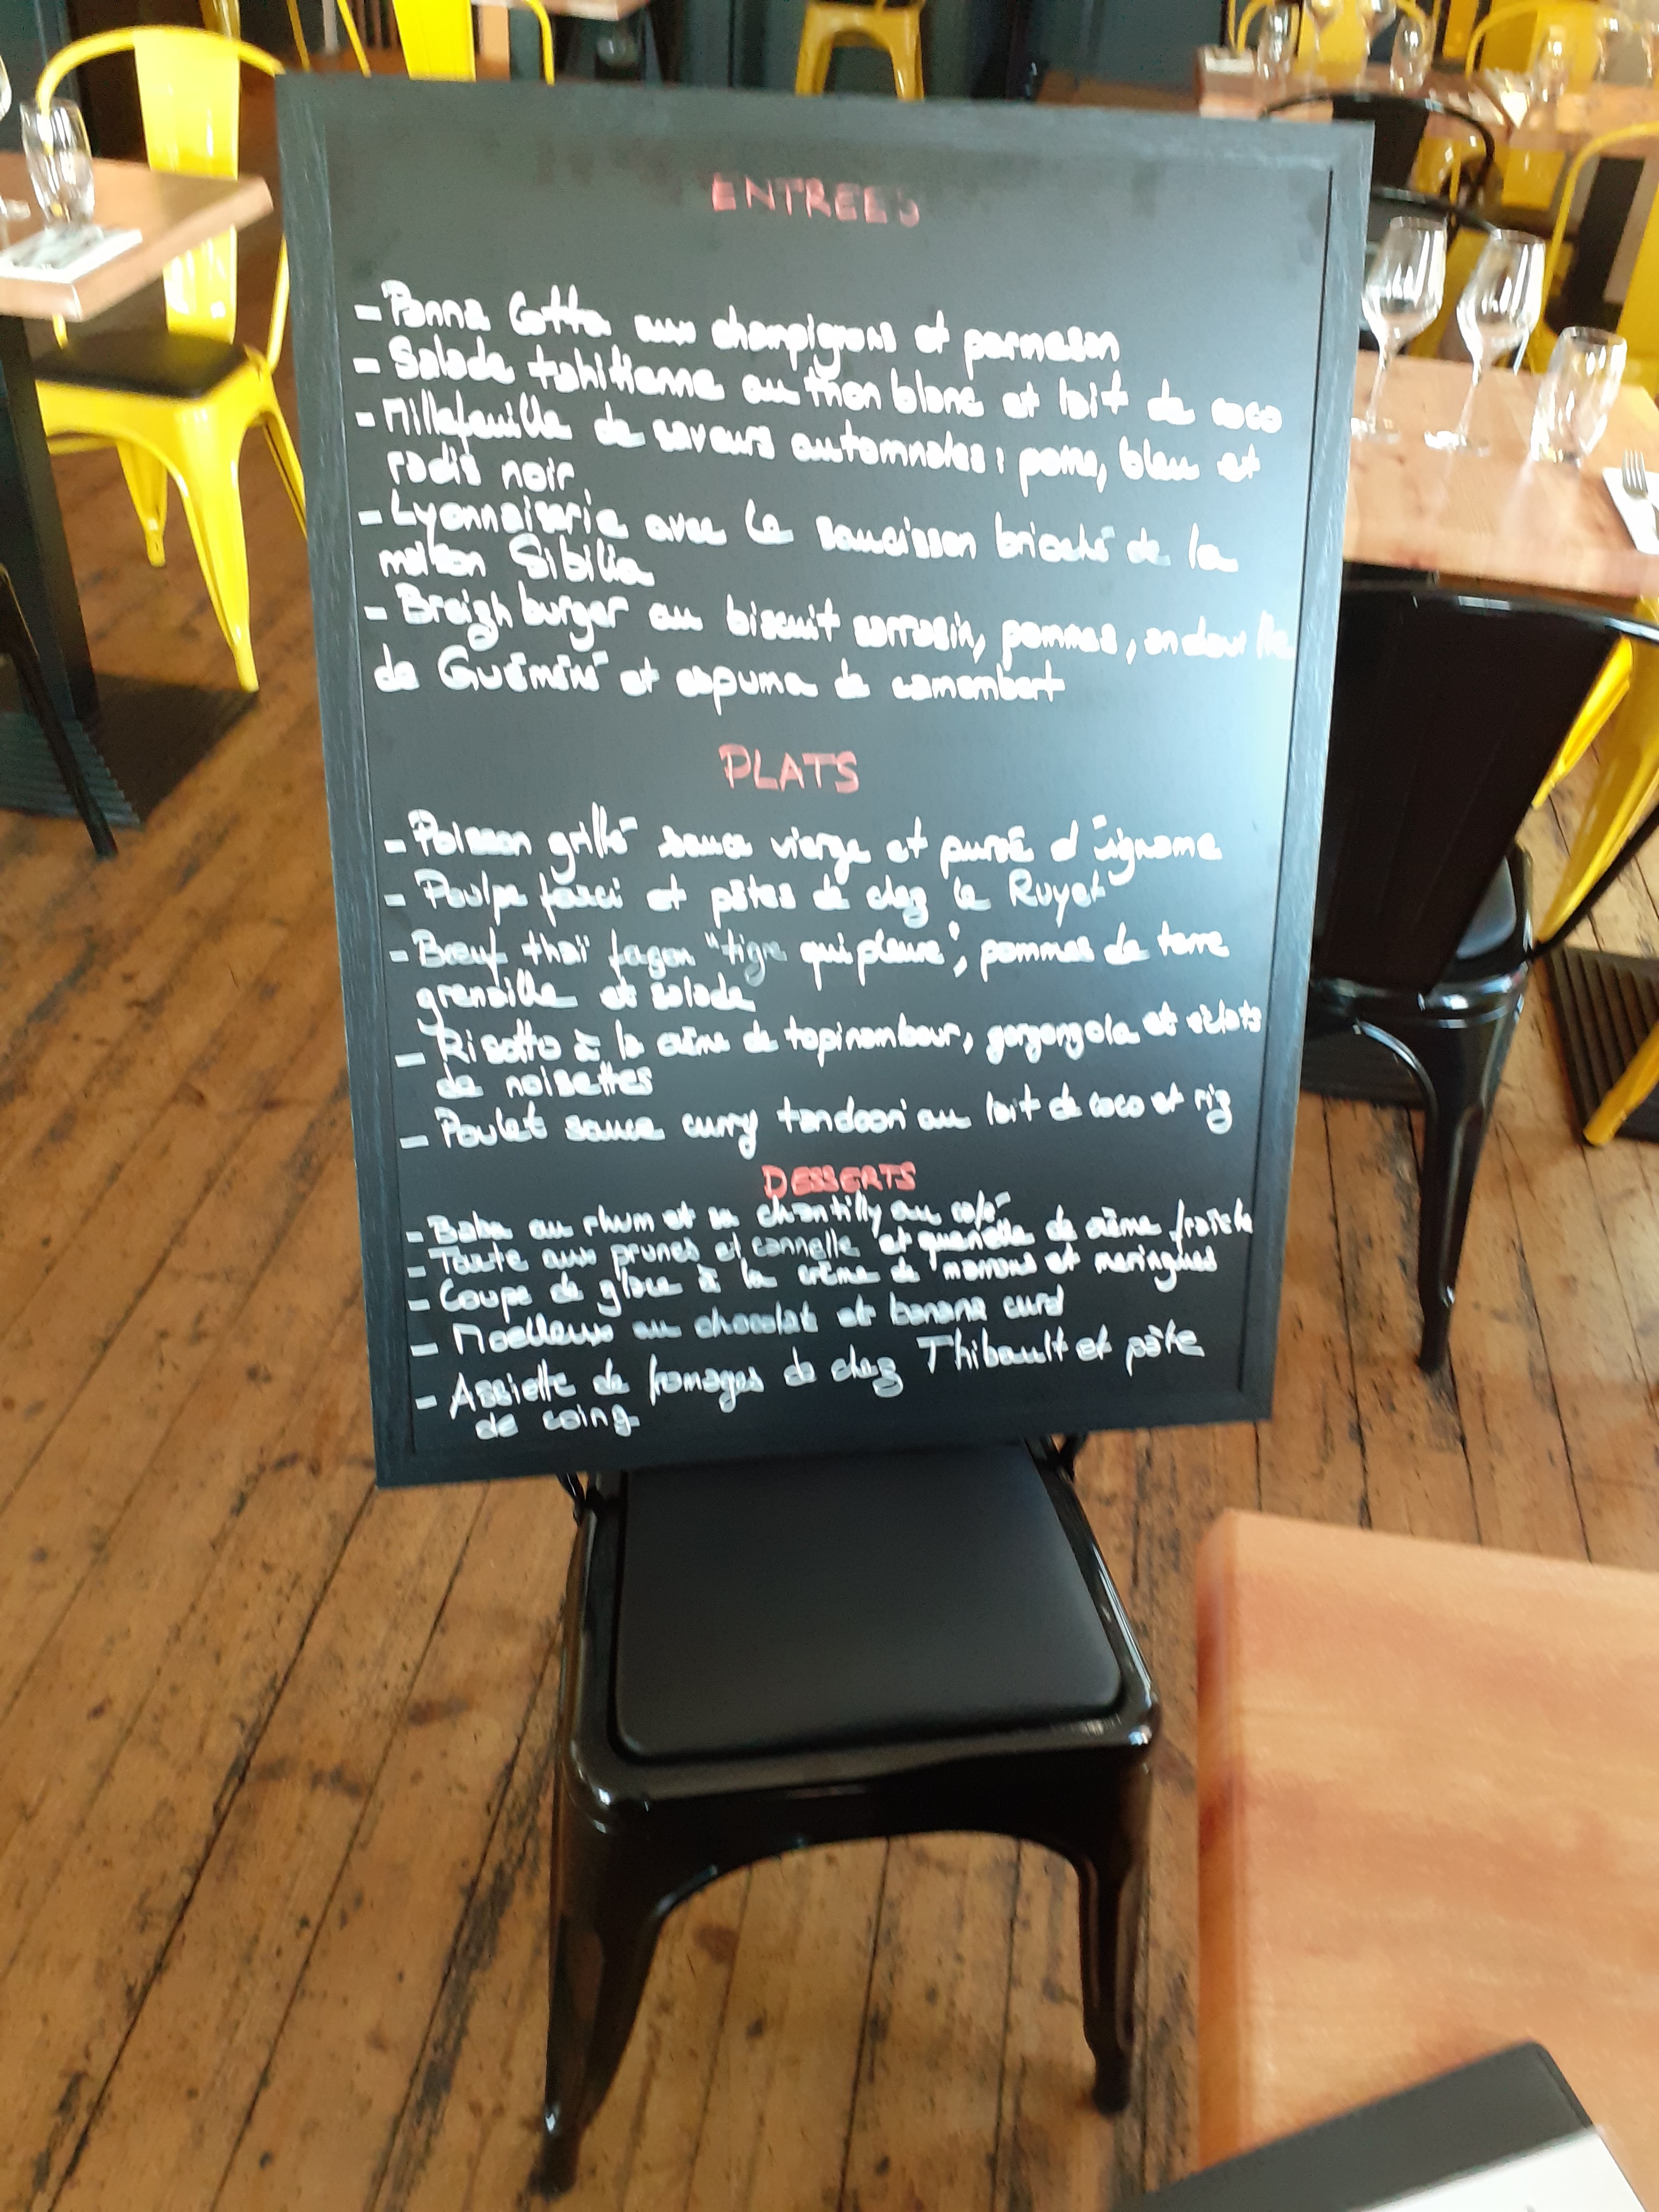 ENTREES
- Panna Cotta aux champignons et parmesan
- Salade tahitienne au thon blanc et lait de coco
- Millefeuille de saveurs automnales : poire, bleu et
radis noir
- Lyonnaiserie avec le saucisson brioché de la
maison Sibilia
- Breizh burger au biscuit sarrasin, pommes, andouille
de Guémené et espuma de camembert
PLATS
- Poisson grillé sauce vierge et purée d'igname
- Poulpe farci et pâtes de chez le Ruyet
- Bœuf thaï façon "tigre qui pleure", pommes de terre
grenaille et salade
- Risotto à la crème de topinambour, gorgonzola et éclats
de noisettes
- Poulet sauce curry tandoori au lait de coco et riz
DESSERTS
- Baba au rhum et sa chantilly au café
- Tarte aux prunes et cannelle et quenelle de crème fraîche
- Coupe de glace à la crème de marrons et meringues
- Moelleux au chocolat et banana curd
- Assiette de fromages de chez Thibault et pâte
de coing